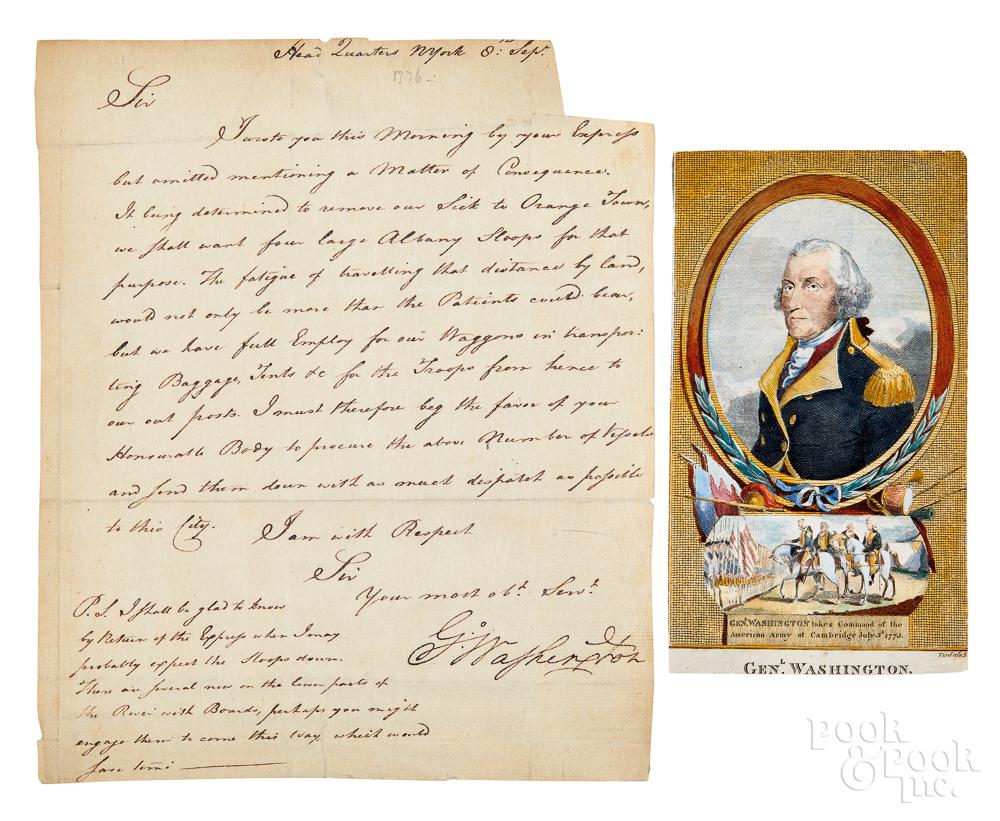 Head Quarters NYork 8:th Sepr.
1776
Sir
I wrote you this Morning by your Express
but omitted mentioning a Matter of Consequence.
It being determined to remove our Sick to Orange Town,
we shall want four large Albany Sloops for that
purpose. The fatigue of travelling that distance by land,
would not only be more than the Patients could bear,
but we have full Employ for our Waggons in transpor:
ting Baggage, Tents &c for the Troops from hence to
our out posts. I must therefore beg the favor of your
Honourable Body to procure the above Number of Vessels
and send them down with as much dispatch as possible
to this City.
I am with Respect
Sir
Your most obt. Servt.
Go: Washington
P.S. I shall be glad to know
by Return of the Express when I may
probably expect the Sloops down.
There are several now on the lower parts of
the River with Boards, perhaps you might
engage them to come this Way, which would
save time
GENL. WASHINGTON takes Command of the
American Army at Cambridge July 3d. 1775.
Tisdale S.
GENL. WASHINGTON.
POOK
& POOK
Inc.